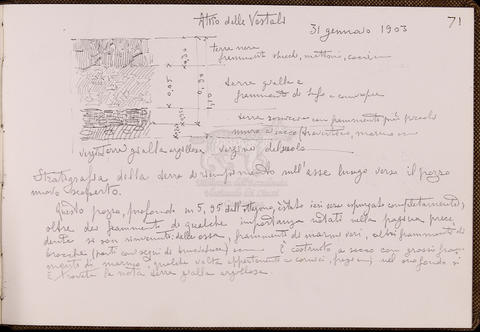 Atrio delle Vestali
31 gennaio 1903
71
terra nera
frammenti stucchi, mattoni, cocci
0,30
0,05
0,90
1,10
terra gialla e
frammenti di tufo e
terra con frammenti più piccoli
muro a secco (travertino, marmo
vergine terra gialla argillosa vergine del suolo
Stratigrafia della terra di riempimento sull'asse lungo verso il pozzo
nuovo scoperto.
Questo pozzo, profondo m 5,95 dall'ottagono, è stato ieri sera espurgato completamente,
oltre dei frammenti di qualche importanza notati nella pagina prece
dente si son rinvenuti delle ossa, frammenti di marmi vari, altri frammenti di
brocche (parti con segni di È costruito a secco con grossi fram
menti di marmo, qualche volta appartenenti a cornici, nel suo fondo si
è trovata la nota terra gialla argillosa.